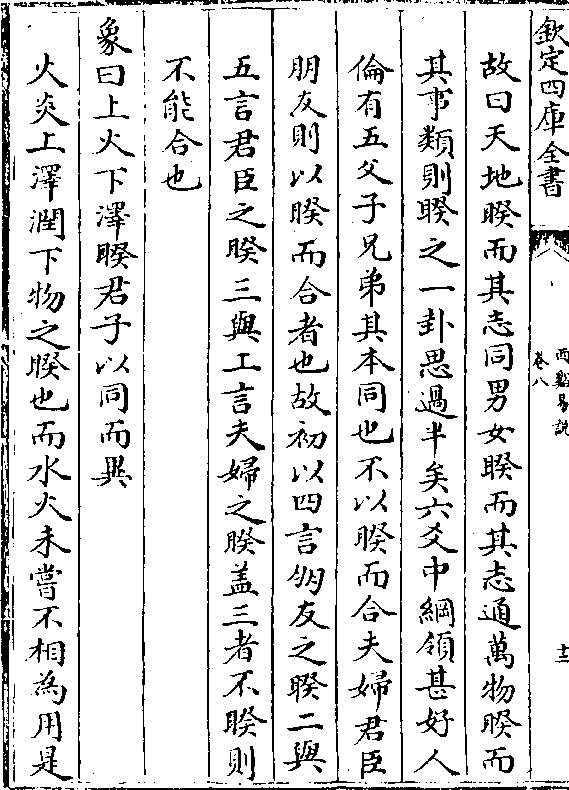 欽定四庫全書
西谿易説
卷八
十三
故曰天地睽而其志同男女睽而其志通萬物睽而
其事類則睽之一卦思過半矣六爻中綱領甚好人
倫有五父子兄弟其本同也不以睽而合夫婦君臣
朋友則以睽而合者也故初以四言朋友之睽二與
五言君臣之睽三與工言夫婦之睽盖三者不睽則
不能合也
象曰上火下澤睽君子以同而異
火炎上澤潤下物之睽也而水火未嘗不相為用是